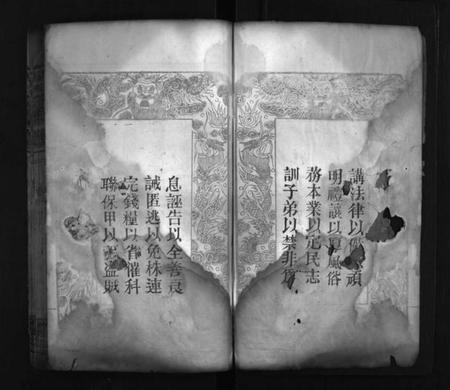 講法律以頑
明禮讓以厚風俗
務本業以定民志
訓子弟以禁非為
息誣告以全善良
誡匿逃以免株連
完錢糧以省催科
聯保甲以盜賊